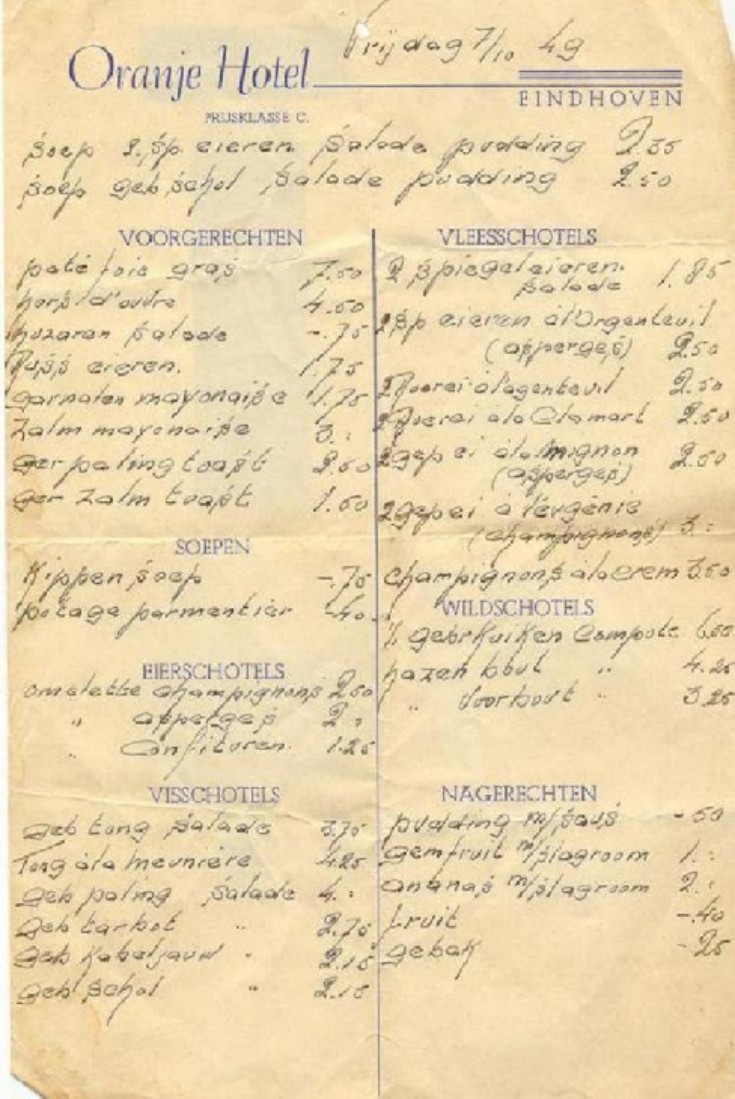 Vrijdag 7/10 49
Oranje Hotel
EINDHOVEN
PRIJSKLASSE C.
Soep 2.sp. eieren Salade pudding 2.35
Soep geb schol Salade pudding 2.50
VOORGERECHTEN
paté foie gras 7.50
hors d'ouvre 4.50
huzaren Salade -.75
Russ eieren. 1.75
garnalen mayonaise 1.75
Zalm mayonaise 3.:
Ger paling toast 2.50
Ger Zalm toast 1.60
SOEPEN
Kippen soep -.75
potage parmentier -40
EIERSCHOTELS
omelette champignons 2.50
" asperges 2.:
" Confituren. 1.25
VISSCHOTELS
geb tong salade 3.75
Tong à la meunière 4.25
geb paling Salade 4.:
Geb tarbot " 2.75
Geb Kabeljauw " 2.15
Geb Schol " 2.15
VLEESSCHOTELS
2 Spiegeleieren.
salade 1.85
2 sp eieren à l'Orgenteuil
(asperges) 2.50
2 Roerei à l'agenteuil 2.50
2 Roerei à la Clamart 2.50
2 gep ei à la Mignon 2.50
(asperges)
2 gep ei à l'eugénie
(champignons) 3.:
Champignons à la crem 3.50
WILDSCHOTELS
½ gebr Kuiken Compote 6.00
hazen bout " 4.25
" Voorbout " 3.25
NAGERECHTEN
pudding m/saus -50
Gemfruit m/slagroom 1.:
ananas m/slagroom 2.:
fruit -.40
gebak -25